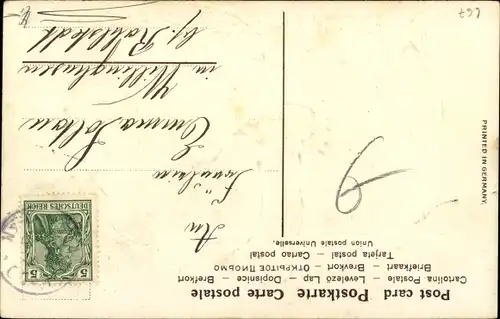 Post card Postkarte Carte postale
Cartolina Postale — Levelező Lap — Dopisnice — Brefkort
Briefkaart — Brevkort — ОТКРЫТОЕ ПИСЬМО
Tarjeta postal — Cartao postal
Union postale Universelle.
An
Fräulein
Emma Soltau
in Willinghusen
b/ Rahlstedt
PRINTED IN GERMANY.
DEUTSCHES REICH
5 5
6